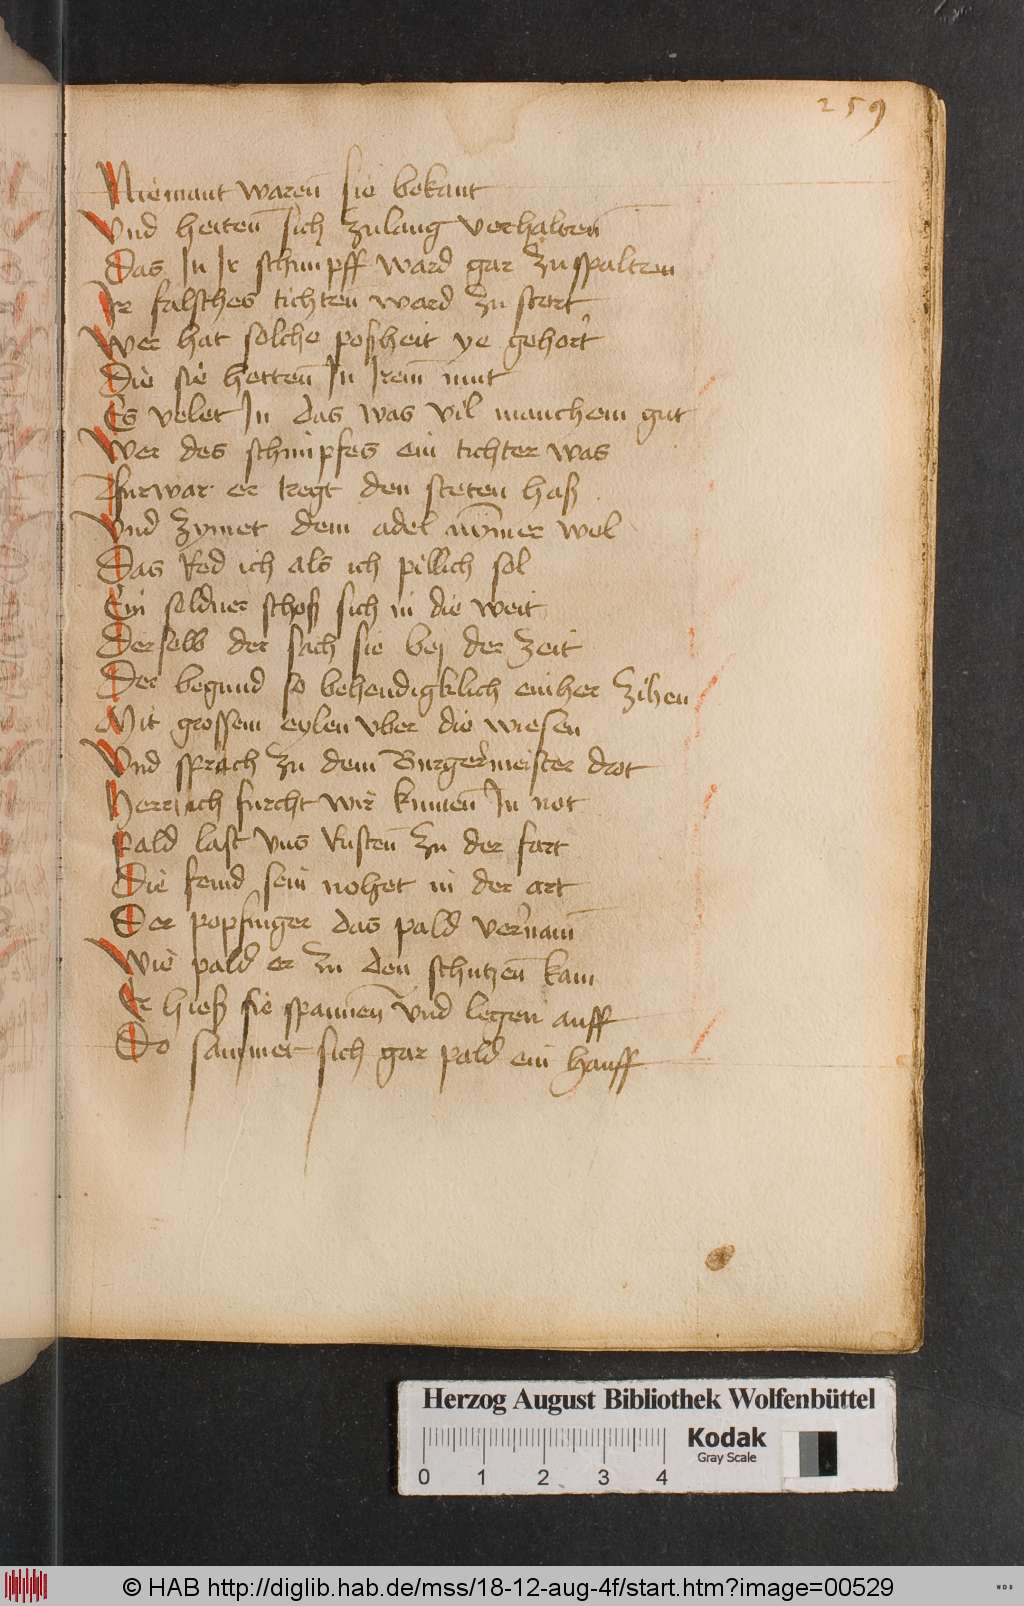 259
Niemant waren̄ sie bekant
Vnd heiten̄ sich zulang verhalten̄
Das In Ir schimpff ward gar zuspalten
Ir falsches tichten ward zu stort
Wer hat solche poßheit ye gehort
Die sie hetten̄ In Irem̄ mut
Es velet In das was vil manchem gut
Wer des schimpfes ein tichter was
Furwar er tregt den steten haß
Vnd zymet dem adel nȳmer wol
Das Red ich als ich pillich sol
Ein soldner schoß sich in die weit
Derselb der sach sie bej der zeit
Der begund so behendigklich einher zihen
Mit grossem eylen vber die wiesen
Vnd sprach zu dem Burgermeister drot
Herr ich furcht wir kumen̄ In not
Pald last vns Rusten̄ zu der fart
Die feind sein nohet in der art
Der popfinger das pald vernam̄
Wie pald er zu den schutzen̄ kam
Er hieß sie spannen̄ vnd legen auff
Do sammet sich gar pald ein hauff
Herzog August Bibliothek Wolfenbüttel
Kodak
Gray Scale
0 1 2 3 4
© HAB http://diglib.hab.de/mss/18-12-aug-4f/start.htm?image=00529